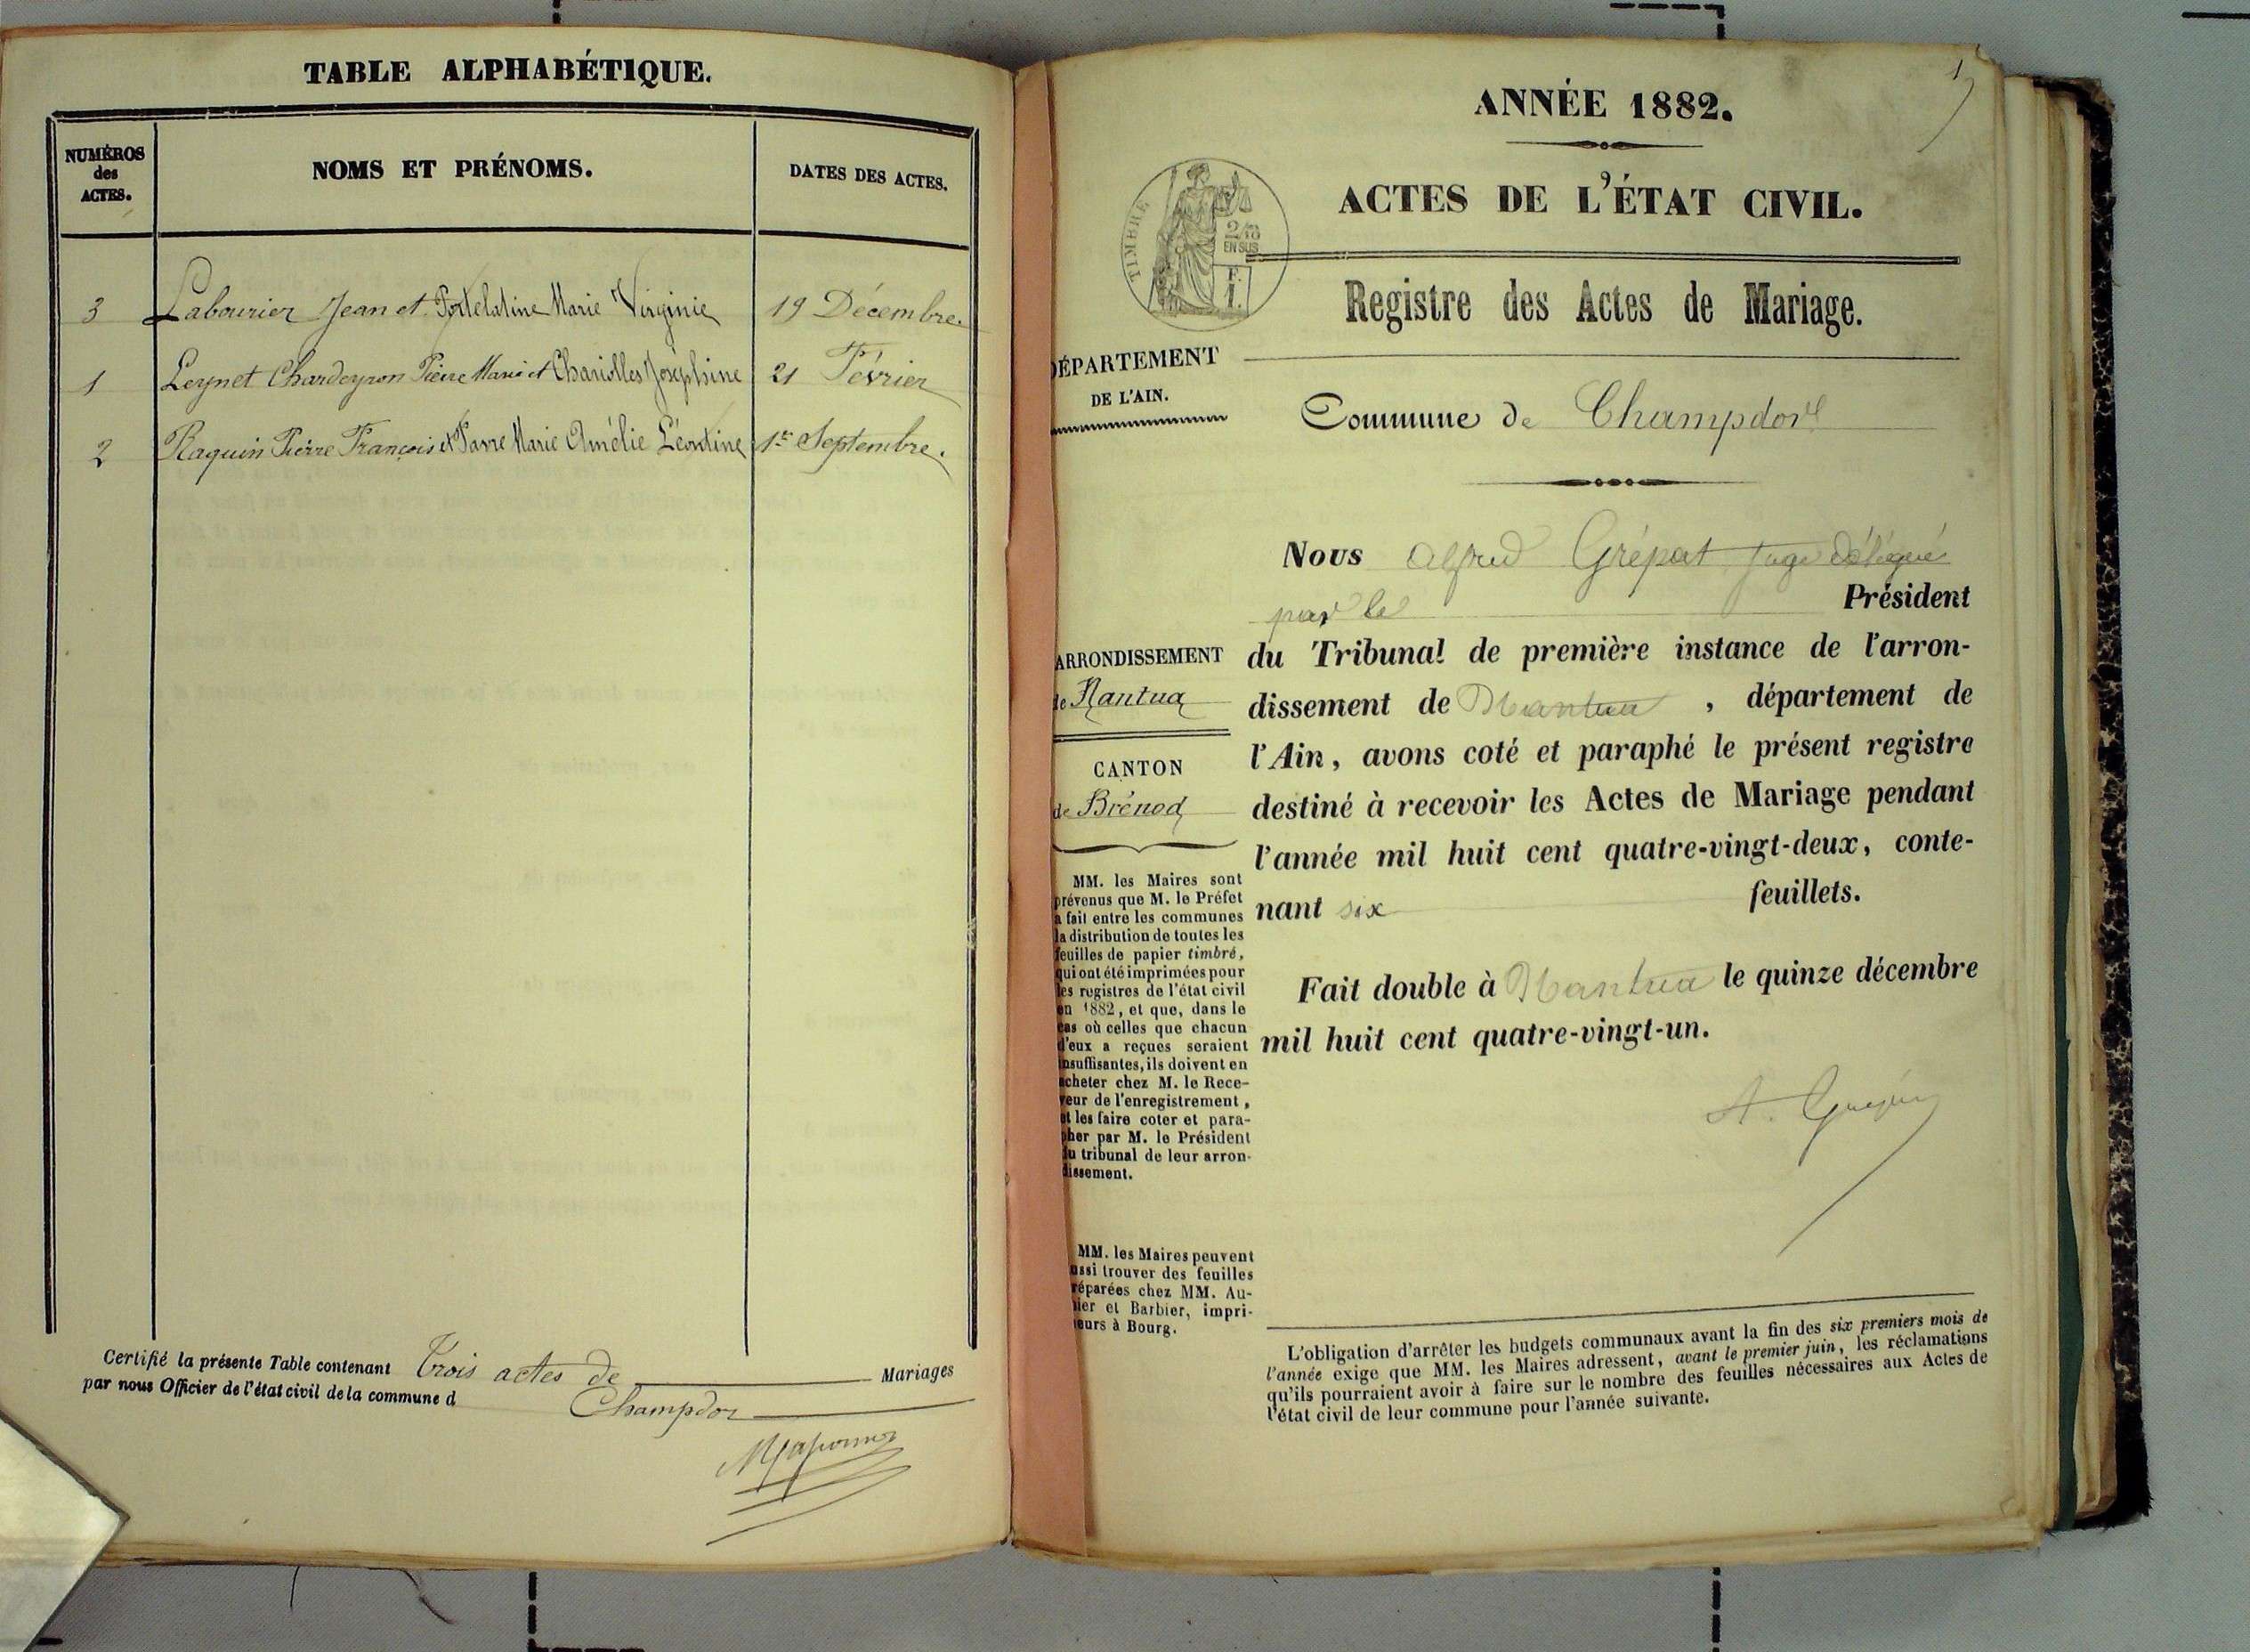 TABLE ALPHABÉTIQUE.
NUMÉROS
des
ACTES.
NOMS ET PRÉNOMS.
DATES DES ACTES.
3 Labourier Jean et Portelatine Marie Virginie 19 Décembre.
1 Leynet Chardeyron Pierre Marie et Josephine 21 Février
2 Raquin Pierre François et Marie Amélie Léontine 1er Septembre.
Certifié la présente Table contenant trois actes de Mariages
par nous Officier de l'état civil de la commune d Champdor
1
ANNÉE 1882.
ACTES DE L'ÉTAT CIVIL.
TIMBRE
2/10
EN SUS
F.
1.
Registre des Actes de Mariage.
DÉPARTEMENT
DE L'AIN.
Commune de Champdor
Nous Alfred Grépat Juge délégué
par le Président
ARRONDISSEMENT
de Nantua
CANTON
de Brénod
du Tribunal de première instance de l'arron-
dissement de Nantua , département de
l'Ain, avons coté et paraphé le présent registre
destiné à recevoir les Actes de Mariage pendant
l'année mil huit cent quatre-vingt-deux, conte-
nant six feuillets.
Fait double à Nantua le quinze décembre
mil huit cent quatre-vingt-un.
MM. les Maires sont
prévenus que M. le Préfet
a fait entre les communes
la distribution de toutes les
feuilles de papier timbré,
qui ont été imprimées pour
les registres de l'état civil
en 1882, et que, dans le
cas où celles que chacun
d'eux a reçues seraient
insuffisantes, ils doivent en
acheter chez M. le Rece-
veur de l'enregistrement,
et les faire coter et para-
pher par M. le Président
du tribunal de leur arron-
dissement.
MM. les Maires peuvent
ussi trouver des feuilles
réparées chez MM. Au-
ier et Barbier, impri-
eurs à Bourg.
L'obligation d'arrêter les budgets communaux avant la fin des six premiers mois de
l'année exige que MM. les Maires adressent, avant le premier juin, les réclamations
qu'ils pourraient avoir à faire sur le nombre des feuilles nécessaires aux Actes de
l'état civil de leur commune pour l'année suivante.